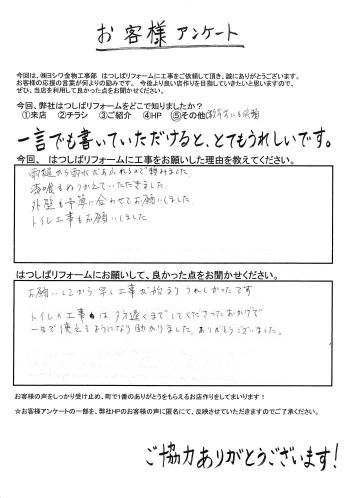 お客様アンケート
今回は、㈱ヨシワ金物工事部 はつしばリフォームに工事をご依頼して頂き、誠にありがとうございます。
お客様の応援の言葉が何よりの励みです。 今後より良い店作りを目指していきたいと思いますので、
ぜひ、当店を利用して良かった点をお聞かせください。
今回、弊社はつしばリフォームをどこで知りましたか?
①来店 ②チラシ ③ご紹介 ④HP ⑤その他(数年前にも依頼
一言でも書いていただけると、とてもうれしいです。
今回、 はつしばリフォームに工事をお願いした理由を教えてください。
雨樋から雨水があふれるので頼みました
漆喰もぬりかえていただきました
外壁も予算に合わせてお願いしました
トイレ工事もお願いしました
はつしばリフォームにお願いして、良かった点をお聞かせください。
お願いしてから早く工事が始まり うれしかったです
トイレの工事は夕方遅くまでしてくださったおかげで
一日で使えるようになり助かりました。ありがとうございました。
お客様の声をしっかり受け止め、町で1番のありがとうをもらえるお店作りをしてまいります!
☆お客様アンケートの一部を、弊社HPのお客様の声に匿名にて、反映させていただきますのでご了承ください。
ご協力ありがとうございます!